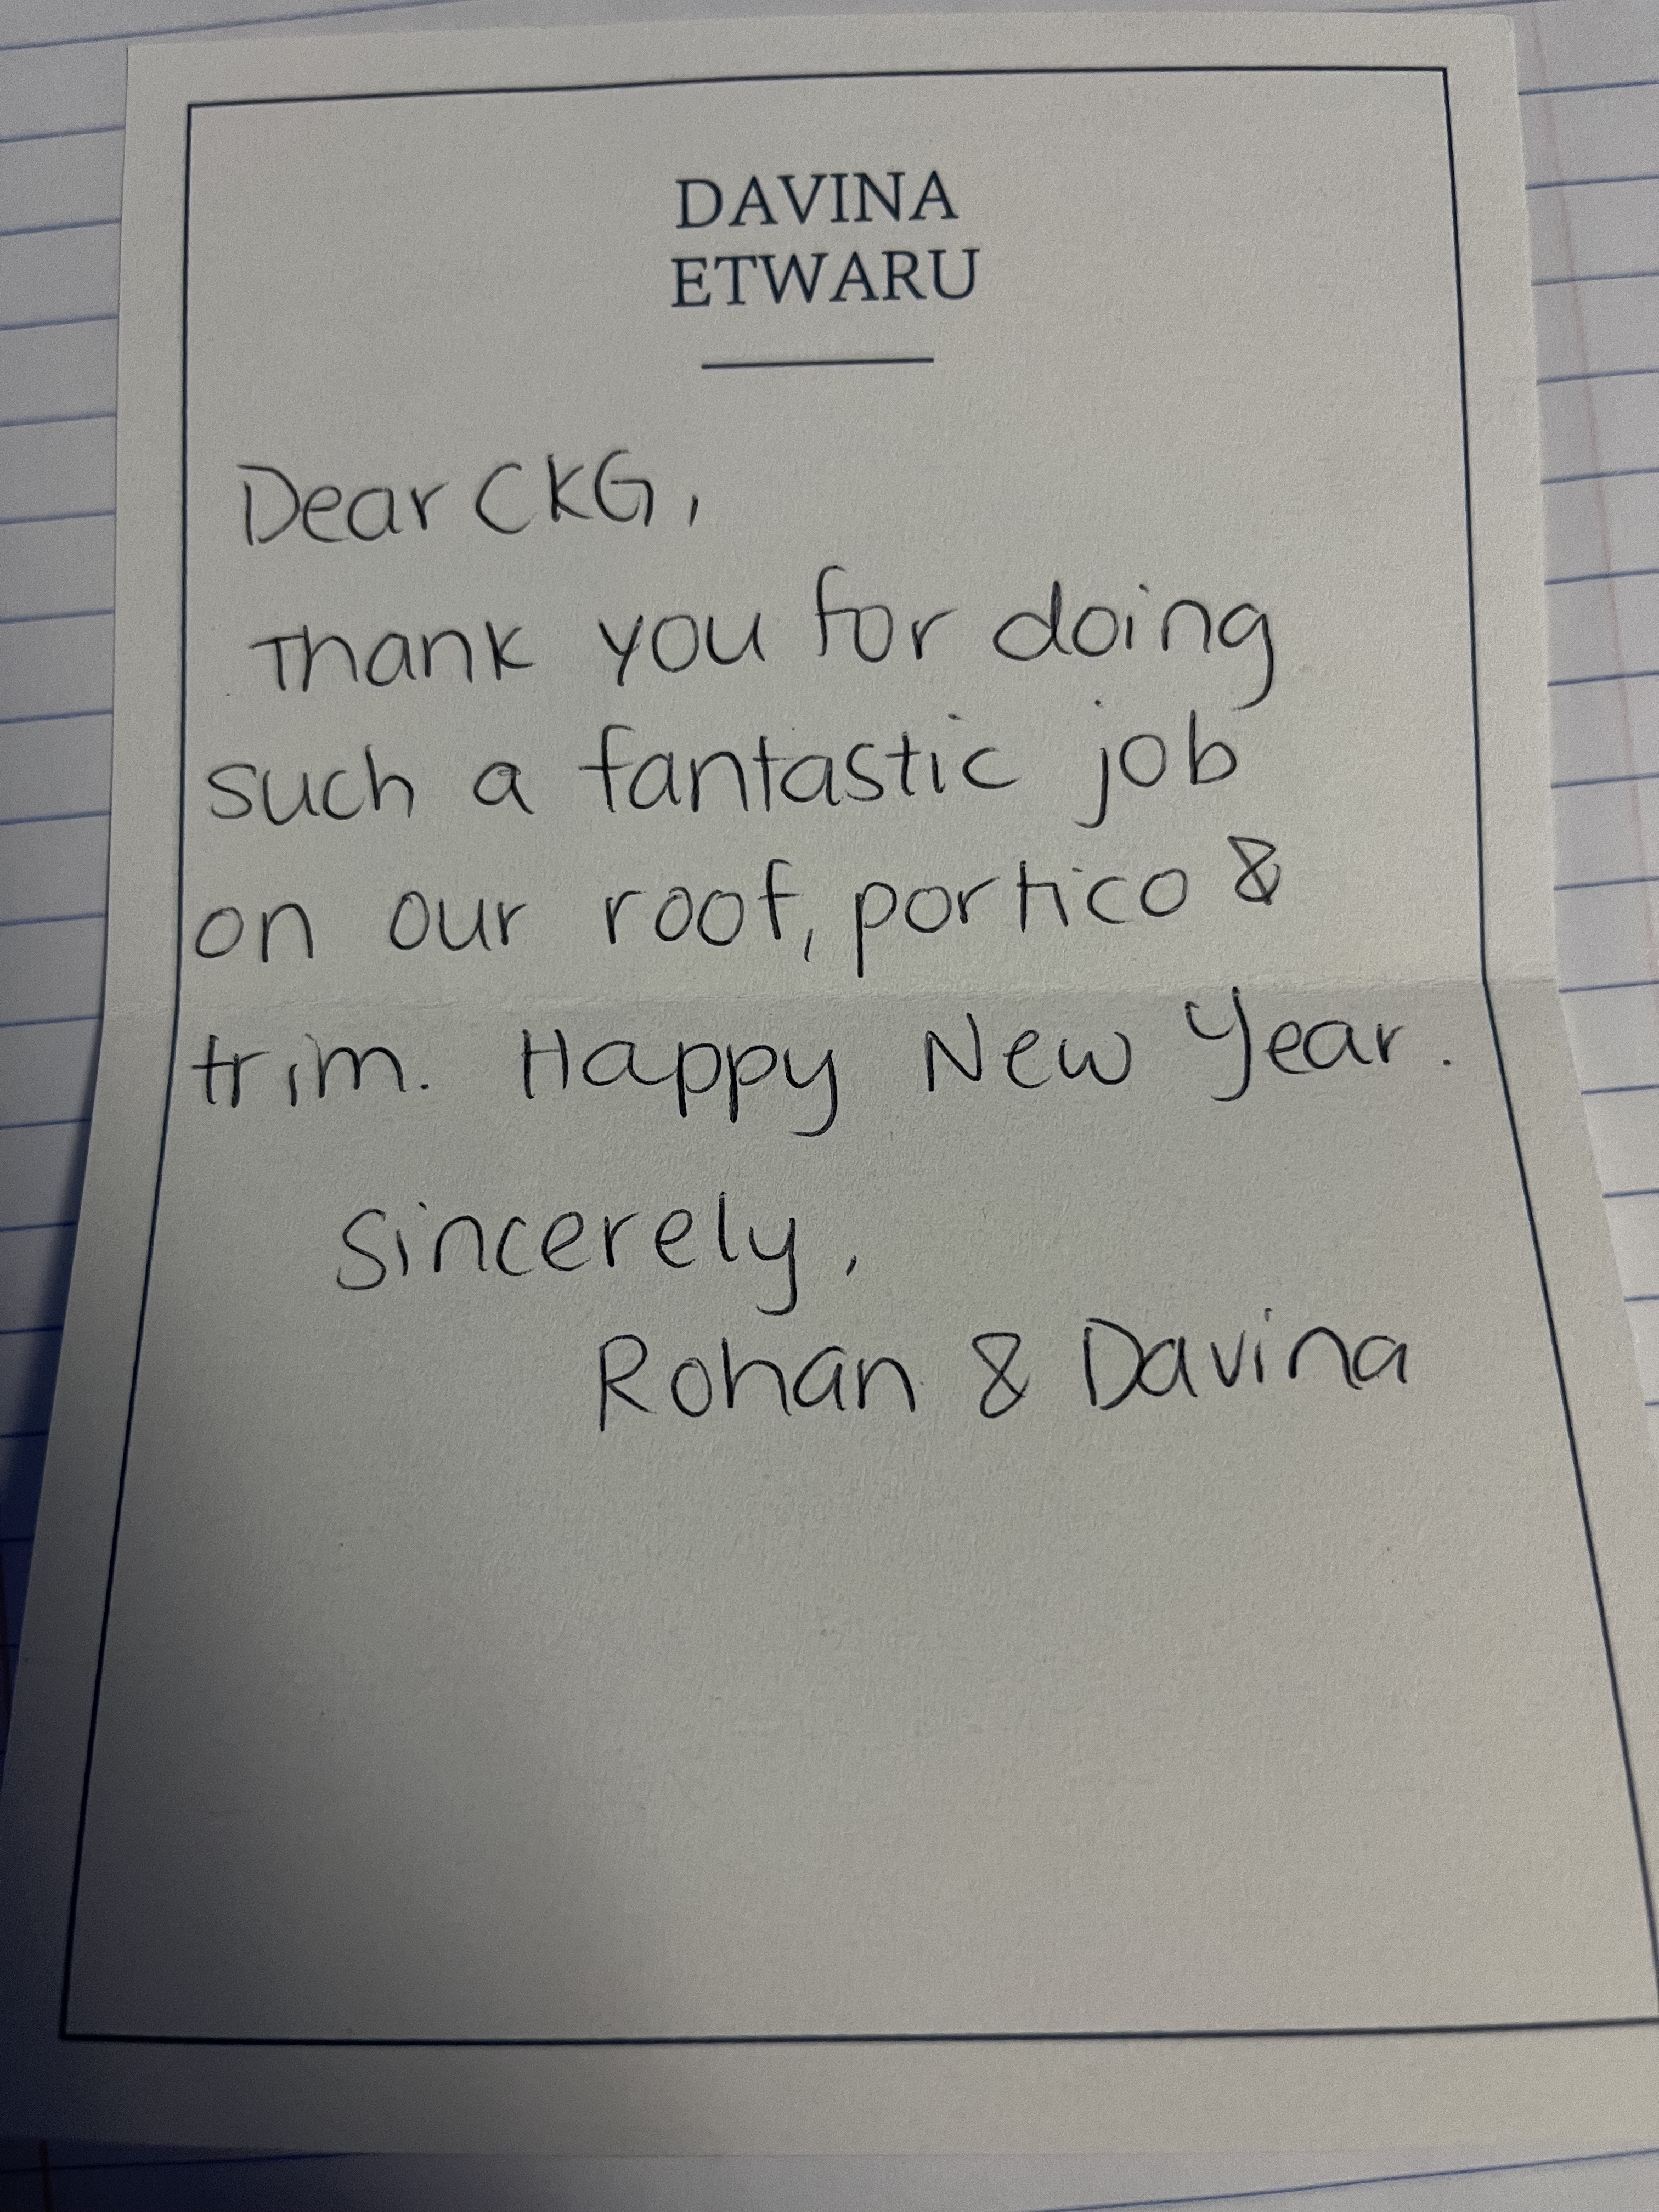 DAVINA
ETWARU
Dear CKG,
Thank you for doing
such a fantastic job
on our roof, portico &
trim. Happy New Year.
Sincerely,
Rohan & Davina